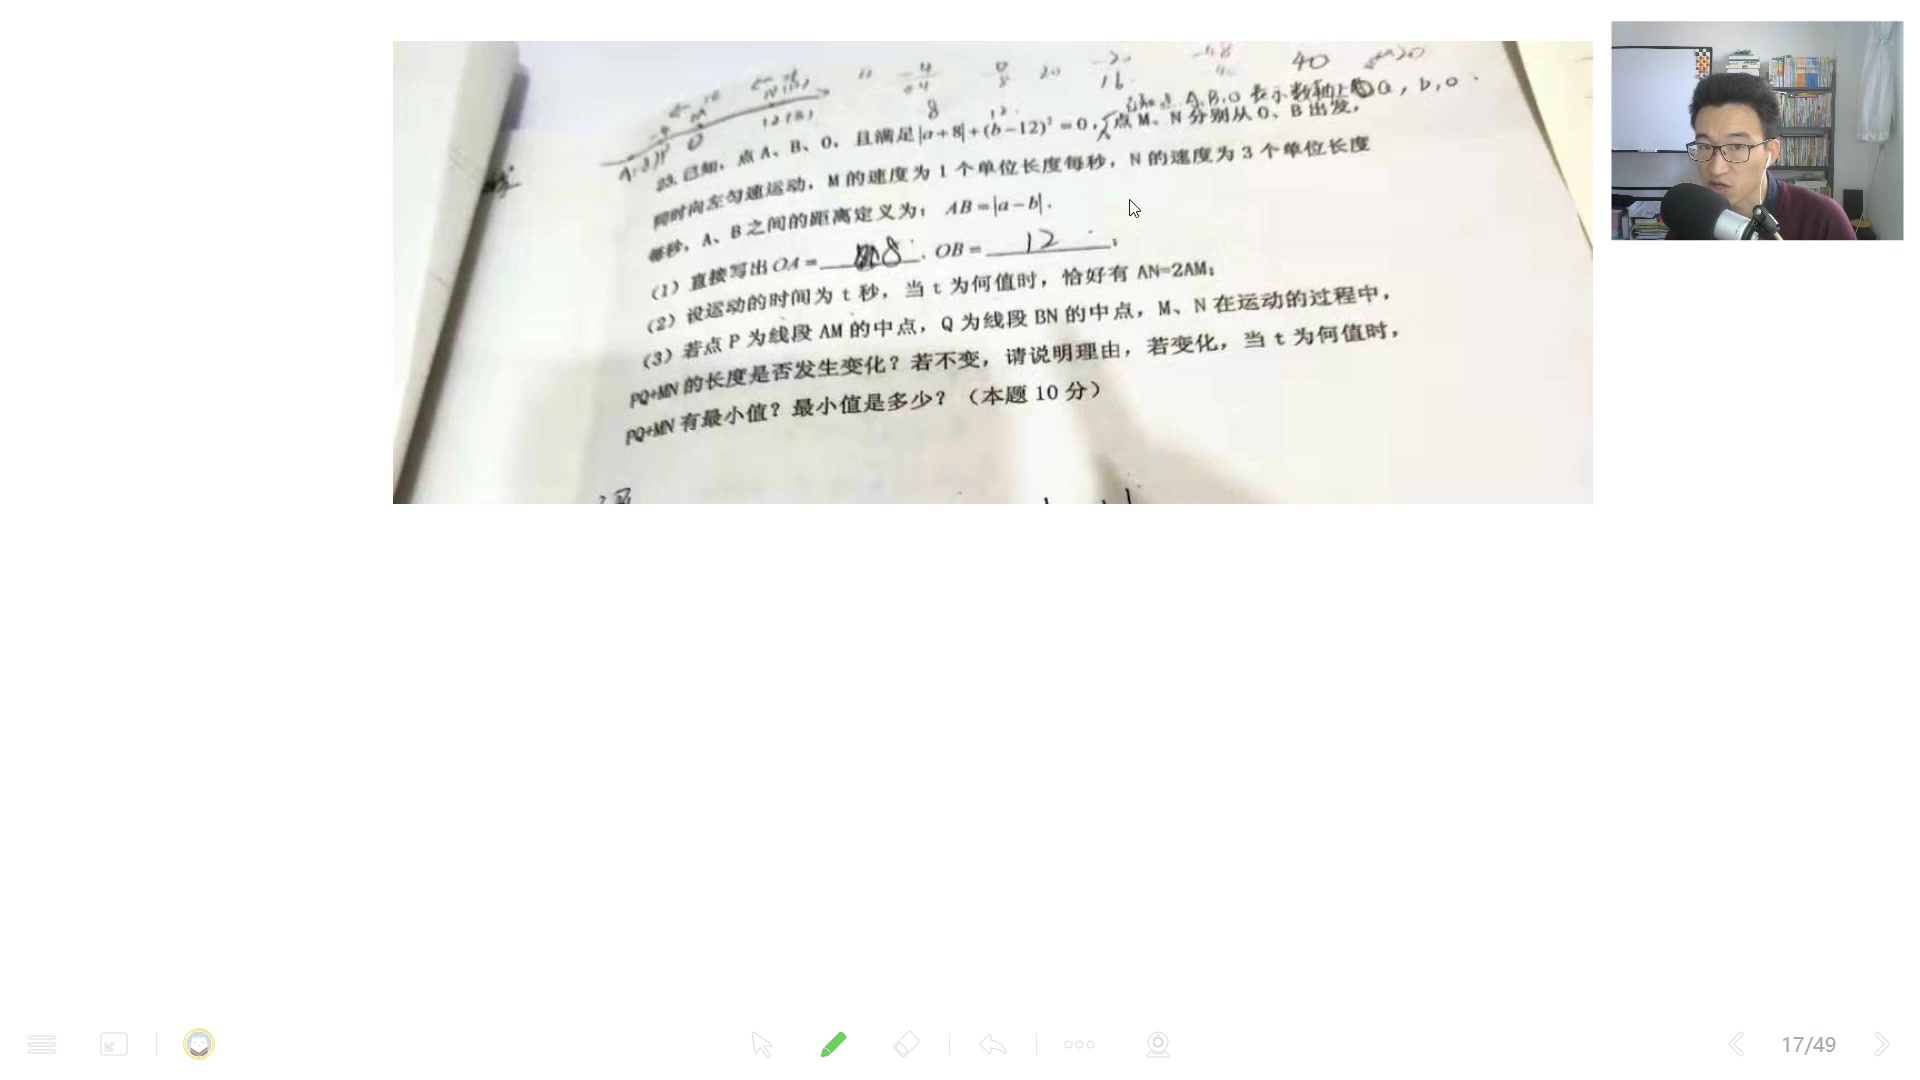 40
8 12
已知点 A.B.O 表示数轴上 a, b, o.
23. 已知，点 A、B、O，且满足|a+8|+(b-12)²=0，点 M、N 分别从 O、B 出发，
同时向左匀速运动，M 的速度为 1 个单位长度每秒，N 的速度为 3 个单位长度
每秒，A、B 之间的距离定义为：AB=|a-b|.
(1) 直接写出 OA= 8 . OB= 12 ;
(2) 设运动的时间为 t 秒，当 t 为何值时，恰好有 AN=2AM；
(3) 若点 P 为线段 AM 的中点，Q 为线段 BN 的中点，M、N 在运动的过程中，
PQ+MN 的长度是否发生变化？若不变，请说明理由，若变化，当 t 为何值时，
PQ+MN 有最小值？最小值是多少？（本题 10 分）
17/49